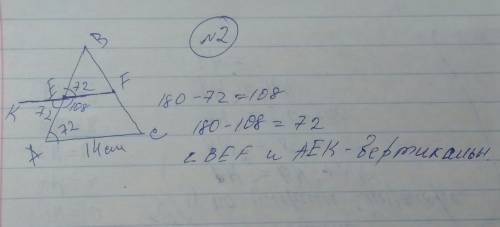 №2
B
E 72 F
K 72 108
180-72=108
72
180-108=72
A 14см C
∠BEF и AEK-вертикальн